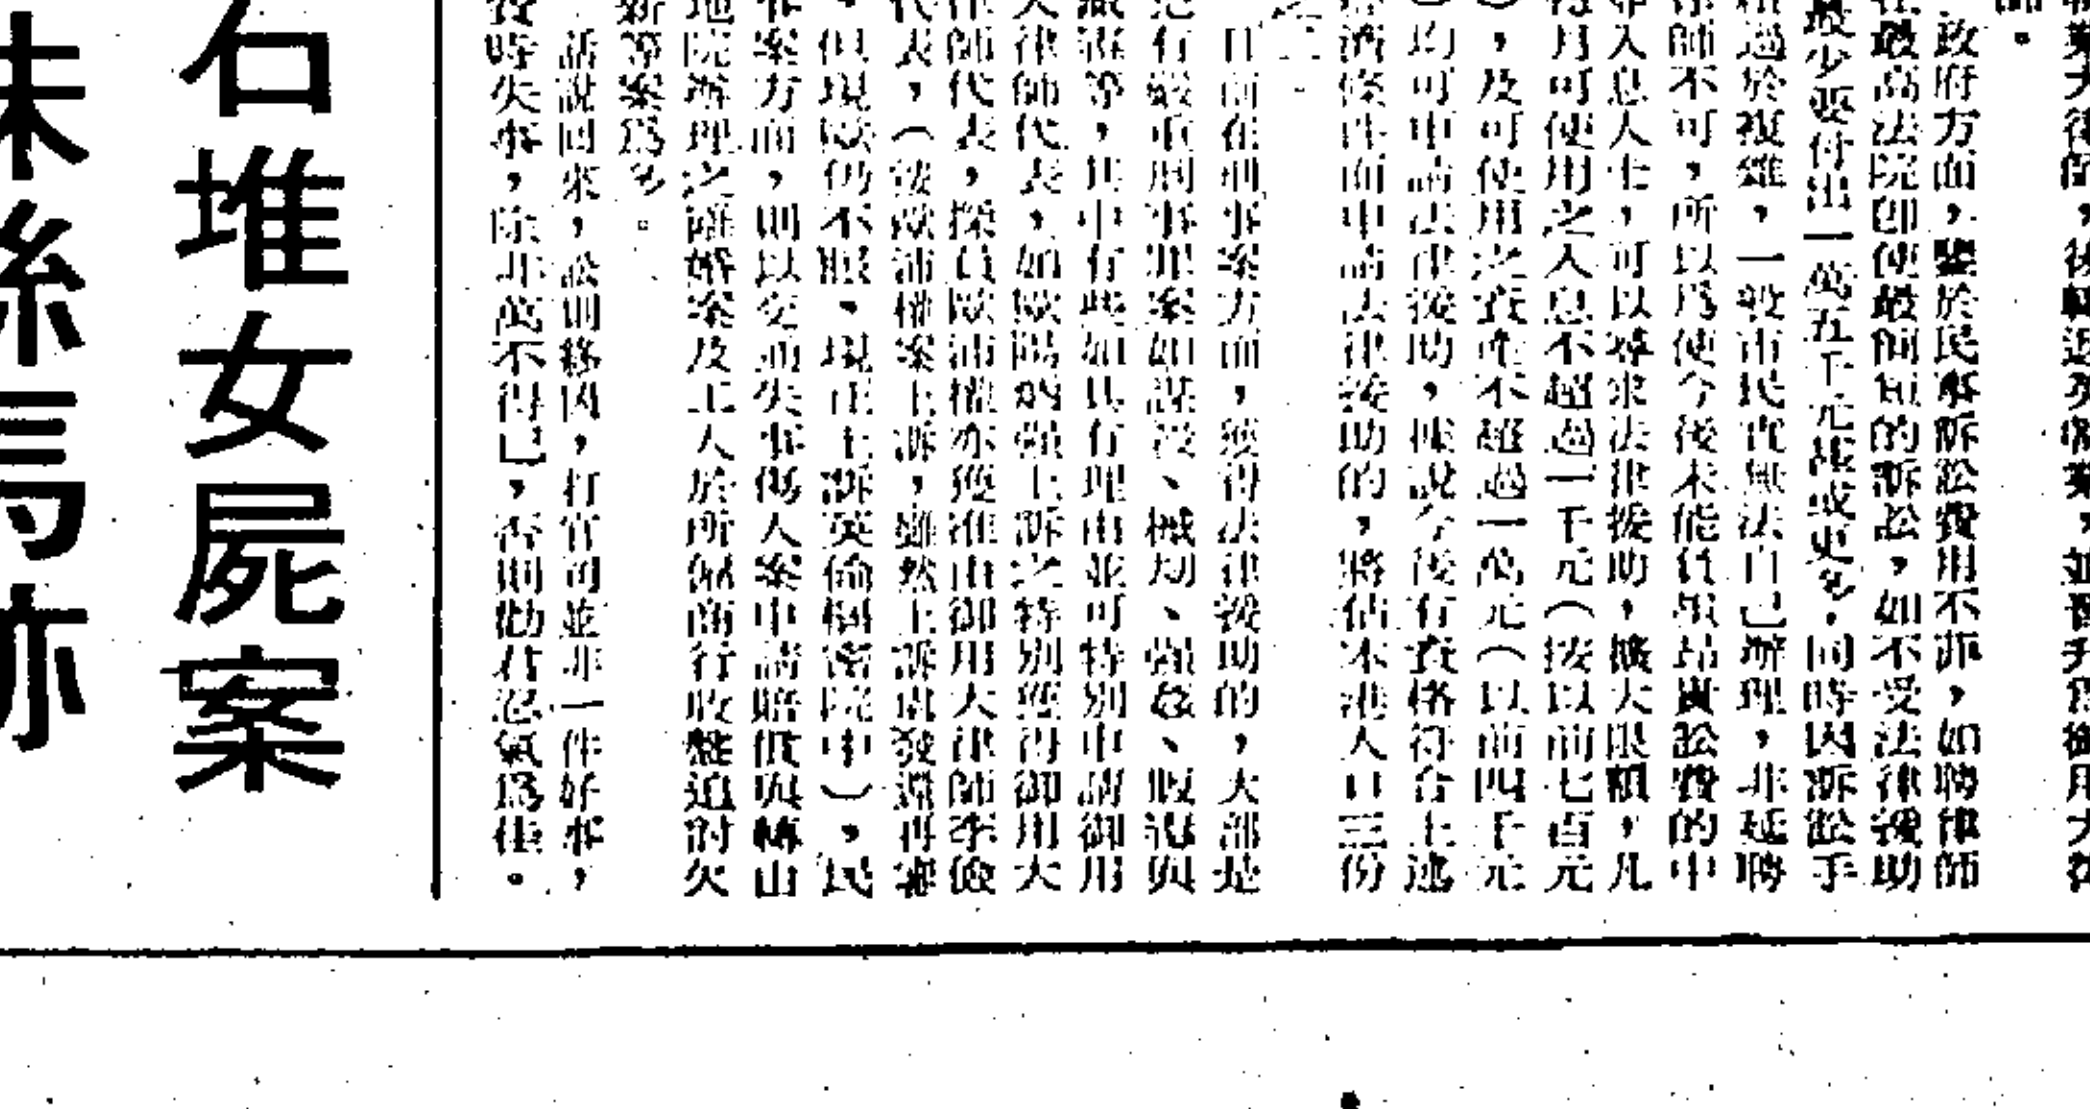 師。
政府方面，鑒於民事訴訟費用不菲，如聘律師
在最高法院即使最簡短的訴訟，如不受法律援助
最少要付出一萬五千元甚或更多，同時因訴訟手
過於複雜，一般市民實無法自己辦理，非延聘
律師不可，所以為使今後未能負担昂貴訟費的中
入息人士，可以尋求法律援助，擴大限額，凡
每月可使用之入息不超過一千元（按以前七百元
），及可使用之資產不超過一萬元（以前四千元
）均可申請法律援助，據說今後有資格符合上述
經濟條件而申請法律援助的，將佔本港人口三份
之二。
目前在刑事案方面，獲得法律援助的，大部是
犯有嚴重刑事罪案如謀殺、械劫、強姦、販毒與
藏毒等，其中有些如具有理由並可特別申請御用
大律師代表，如歐陽炳強上訴之特別獲得御用大
律師代表，探員歐浦權亦獲准由御用大律師李儉
代表，（按歐浦權案上訴，雖然上訴庭發還再審
，但現歐仍不服，現正上訴英倫樞密院中），民
事案方面，則以交通失事傷人案申請賠償與轉山
地院辦理之離婚案及工人於所僱商行收盤追討欠
薪等案為多。
話說回來，訟則終凶，打官司並非一件好事，
費時失事，除非萬不得已，否則勸君忍氣為佳。
石堆女屍案